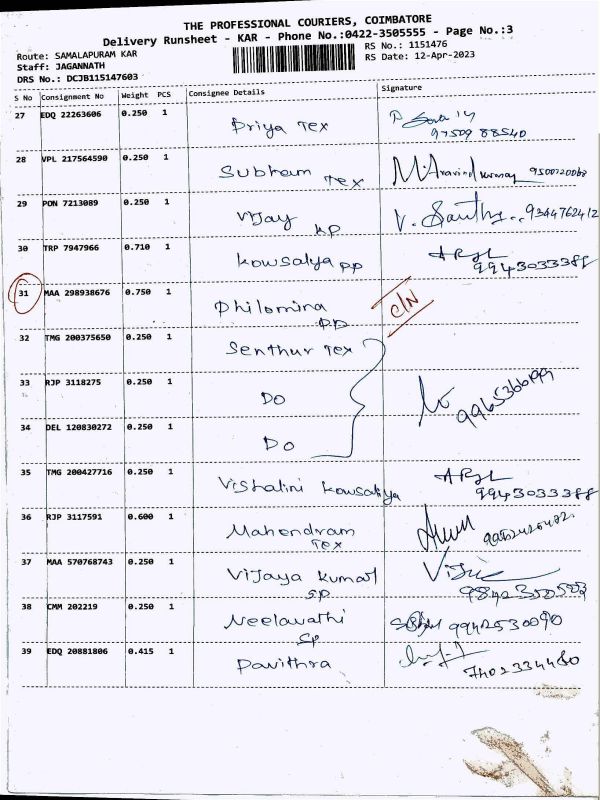 THE PROFESSIONAL COURIERS, COIMBATORE
Delivery Runsheet - KAR - Phone No.:0422-3505555 - Page No.:3
Route: SAMALAPURAM KAR
RS No.: 1151476
Staff: JAGANNATH
RS Date: 12-Apr-2023
DRS No.: DCJB115147603
S No Consignment No Weight PCS Consignee Details Signature
27 EDQ 22263606 0.250 1 Priya Tex
97509 88540
28 VPL 217564590 0.250 1 Subham Tex M. Aravind kumar 9500720068
29 PON 7213089 0.250 1 Vijay KP V. Santhy. 9344762412
30 TRP 7947966 0.710 1 Kowsalya PP
9943033388
31 MAA 298938676 0.750 1 Philomina PP C/N
32 TMG 200375650 0.250 1 Senthur Tex
33 RJP 3118275 0.250 1 DO
34 DEL 120830272 0.250 1 DO
35 TMG 200427716 0.250 1 Vishalini Kowsalya
9943033388
36 RJP 3117591 0.600 1 Mahendram Tex
37 MAA 570768743 0.250 1 Vijaya Kumar SP
9842350503
38 CMM 202219 0.250 1 Neelavathi SP 9942530090
39 EDQ 20881806 0.415 1 Pavithra
7402334480